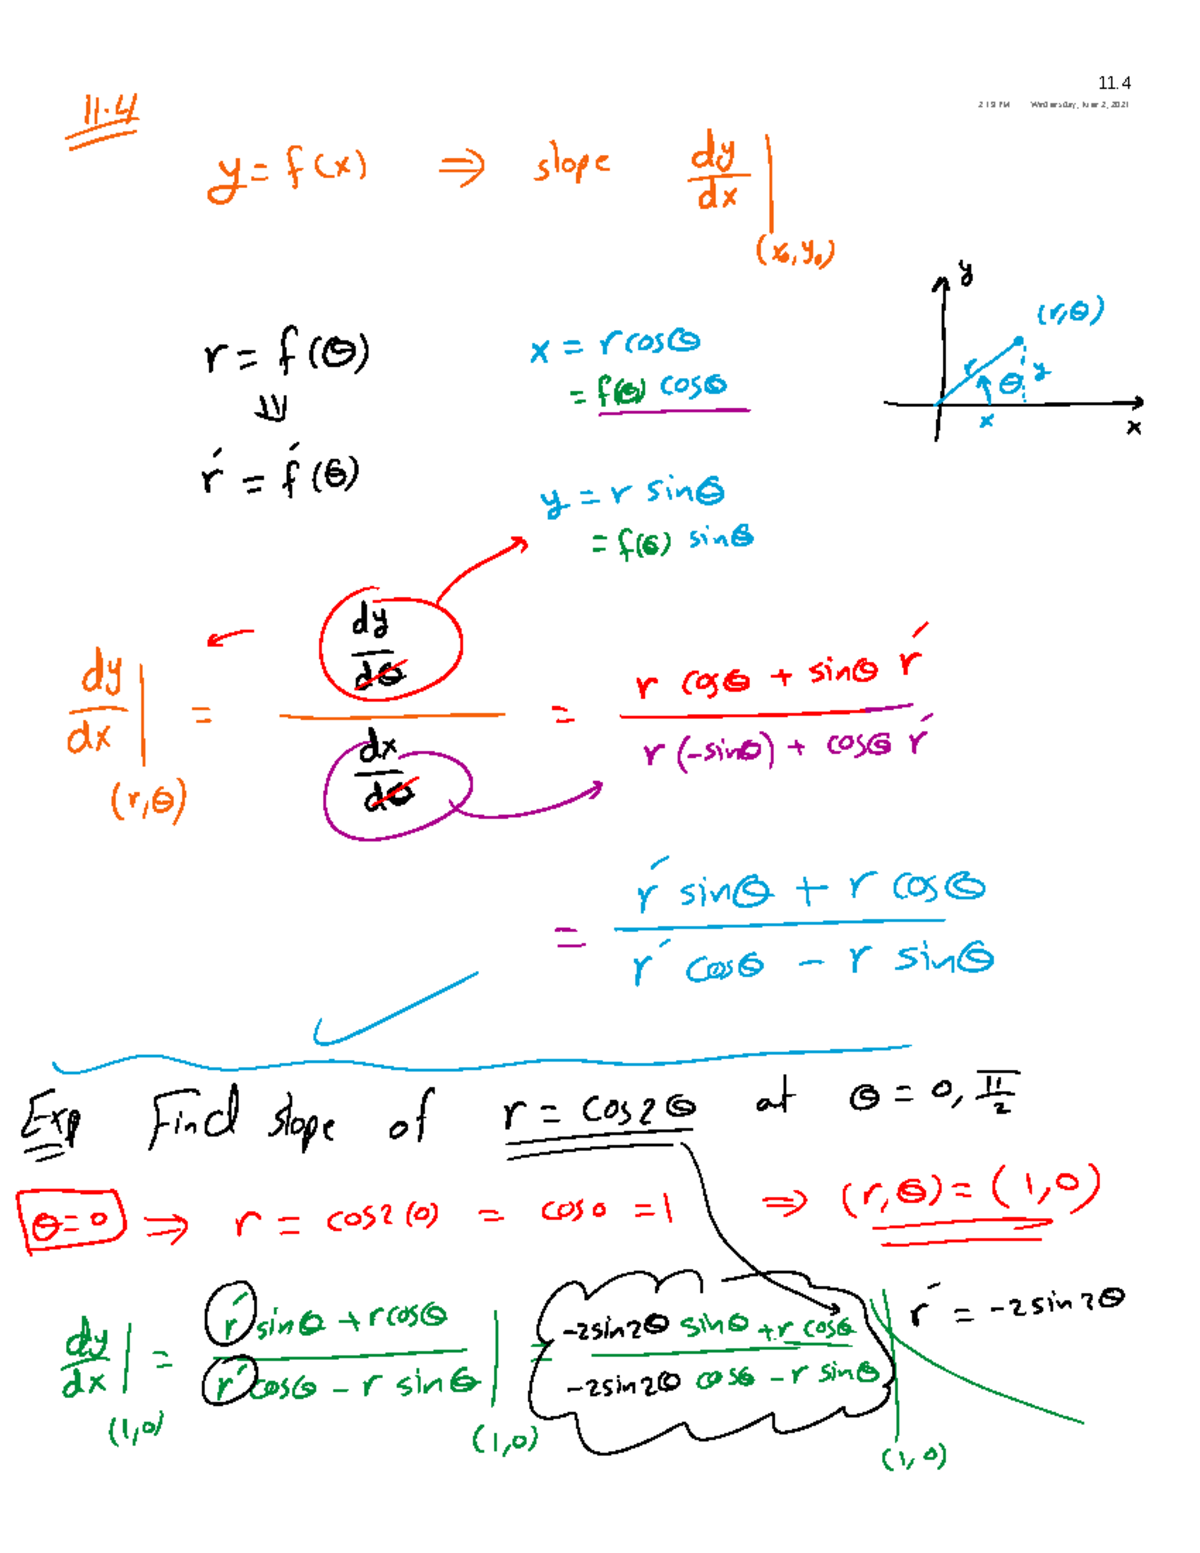 11.4
2:19 PM Wednesday, 2, 2021
11.4
y = f(x) ⇒ slope dy/dx |(x₀, y₀)
y
(r, θ)
r θ y
x x
r = f(θ) x = r cosθ
⇓ = f(θ) cosθ
r′ = f′(θ)
y = r sinθ
= f(θ) sinθ
dy/dx |(r, θ) = (dy/dθ)/(dx/dθ) = (r cosθ + sinθ r′)/(r(-sinθ) + cosθ r′)
= (r′ sinθ + r cosθ)/(r′ cosθ - r sinθ)
Exp Find slope of r = cos2θ at θ = 0, π/2
θ = 0 ⇒ r = cos2(0) = cos0 = 1 ⇒ (r, θ) = (1, 0)
r′ = -2sin2θ
dy/dx |(1, 0) = (r′ sinθ + r cosθ)/(r′ cosθ - r sinθ) |(1, 0) = (-2sin2θ sinθ + r cosθ)/(-2sin2θ cosθ - r sinθ) |(1, 0)